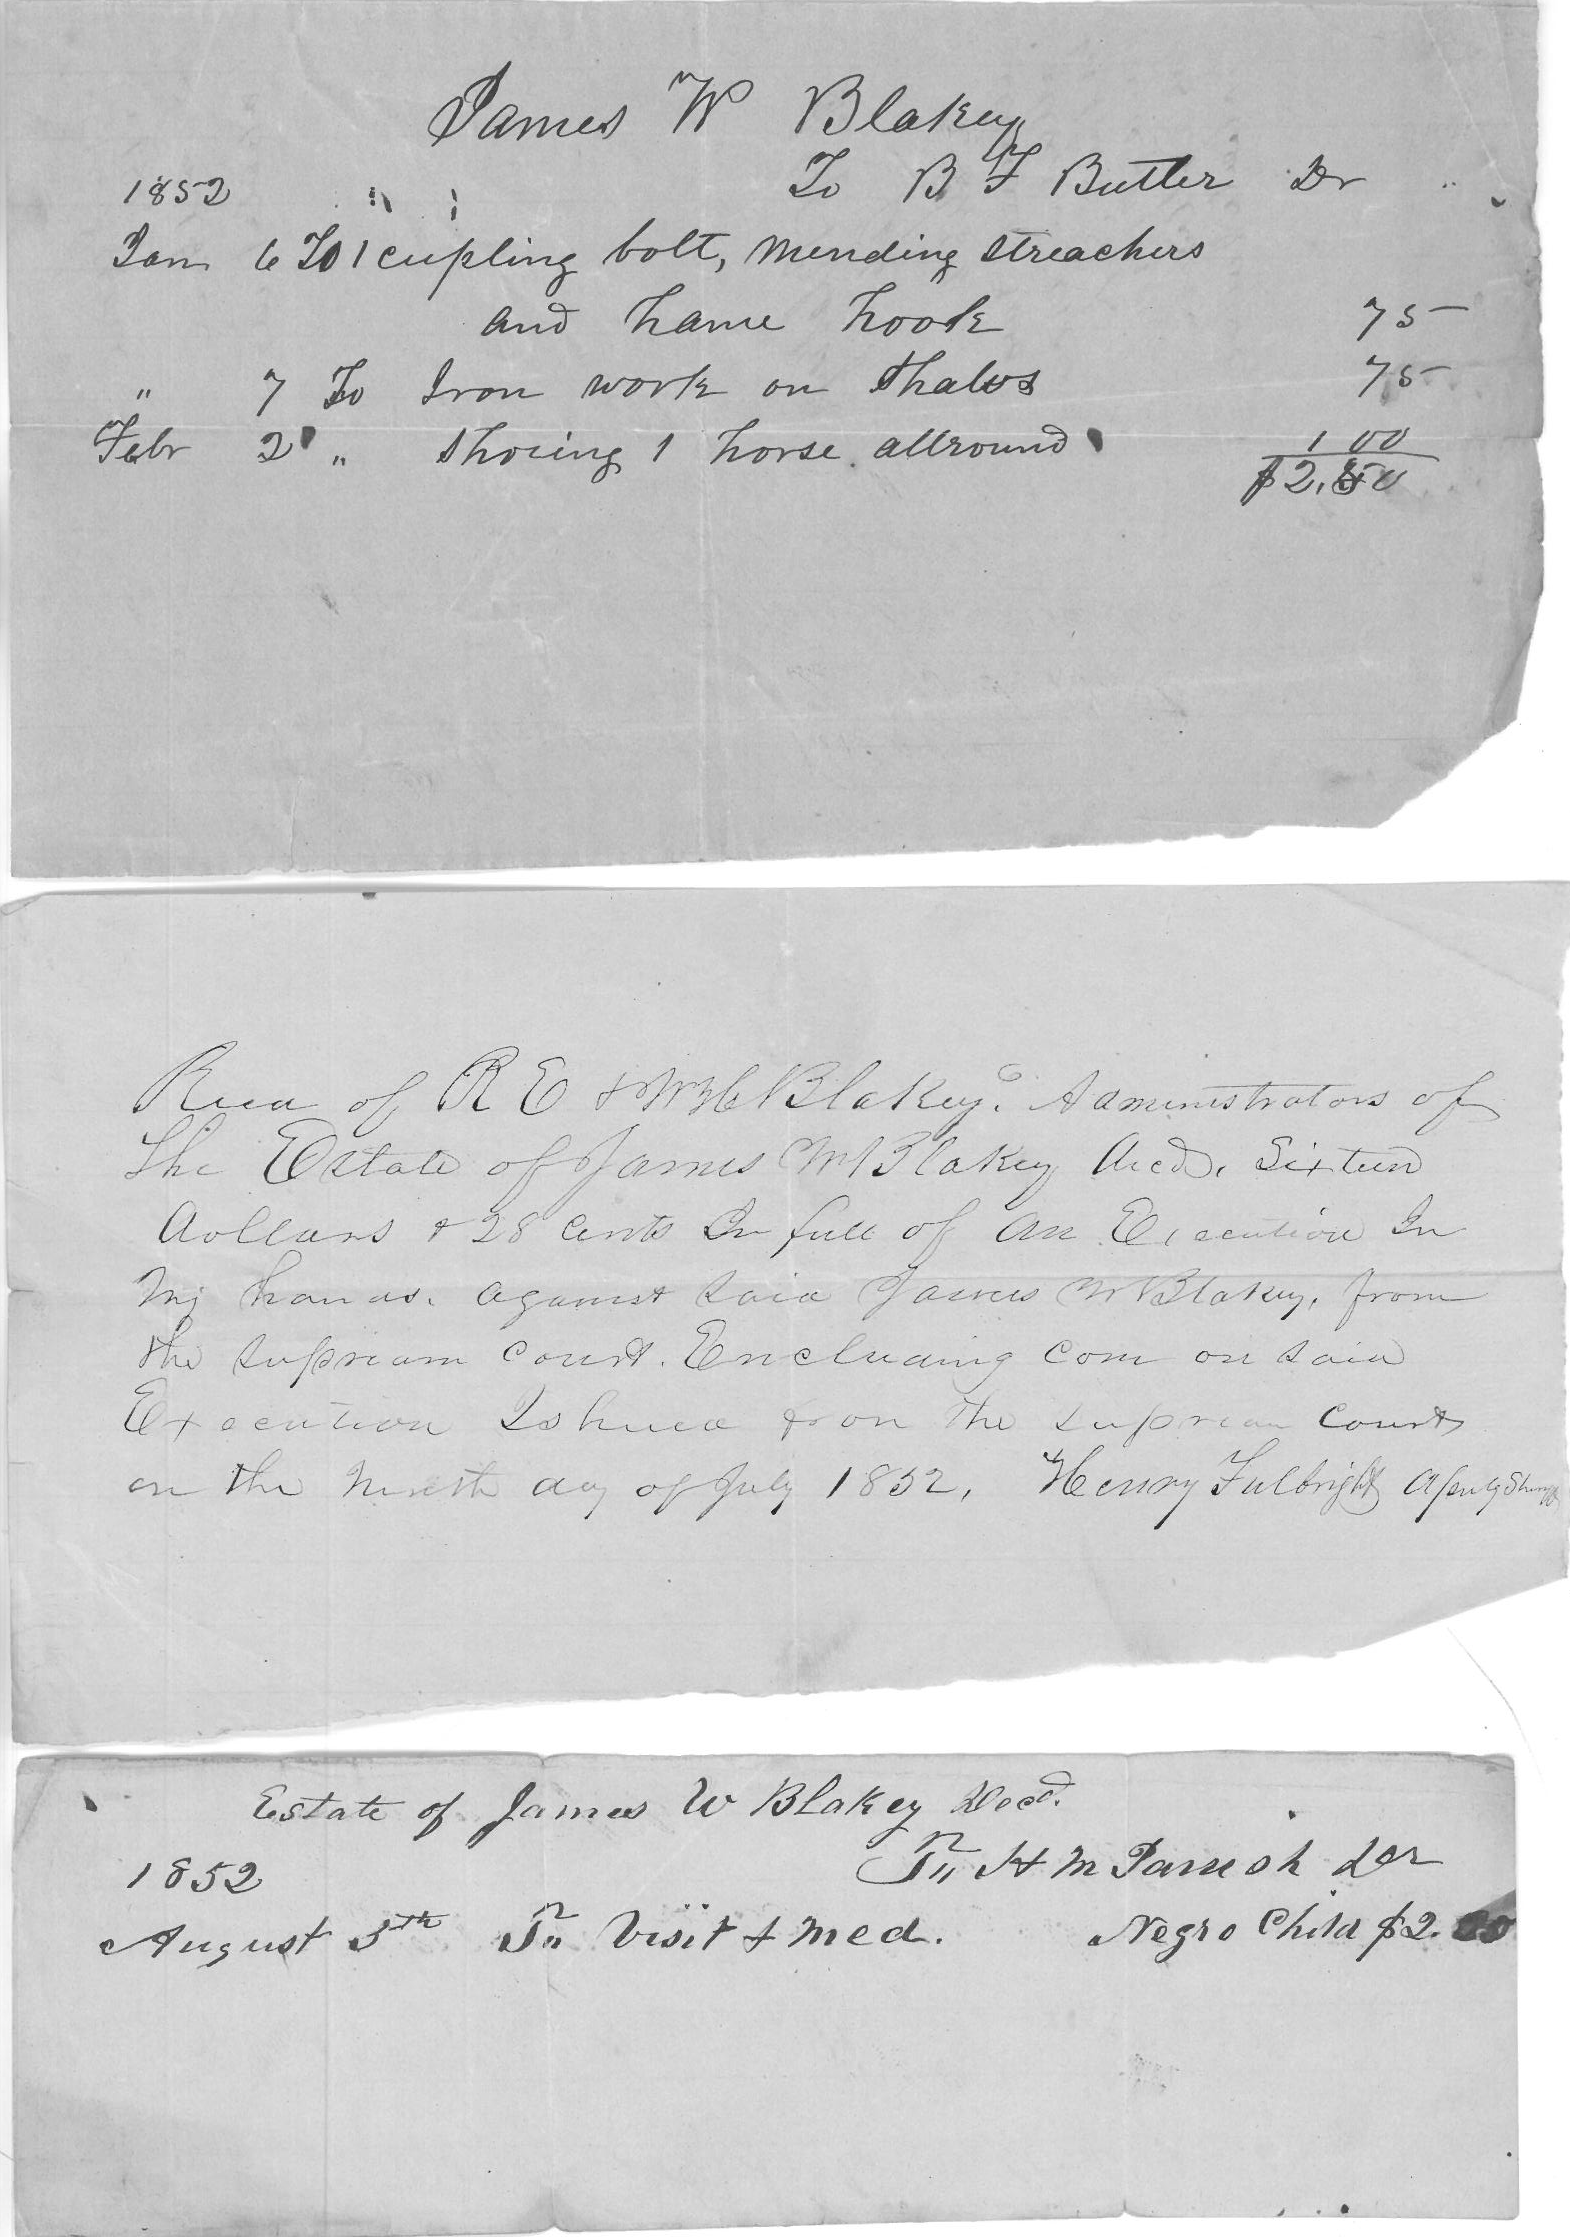 James W Blakey
1852 To B F Butler Dr
Jan 6 To 1 cupling bolt, mending streachers
and hame hook 75
" 7 To Iron work on thalvs 75
Febr 2 " Shoeing 1 horse allround 1 00
$2.50
Recd of R E & W H C Blakey. Administrators of
the Estate of James W Blakey Decd. Sixteen
dollars & 28 cents In full of an Execution In
My hands. against said James W Blakey, from
the supream court. Encluding Com on said
Execution Ishued from the supream Court
on the day of July 1852, Henry Fulbright Deputy Sheriff
Estate of James W Blakey Decd.
1852 To H M Parrish Dr
August 5th To Visit & Med. Negro Child $2.00